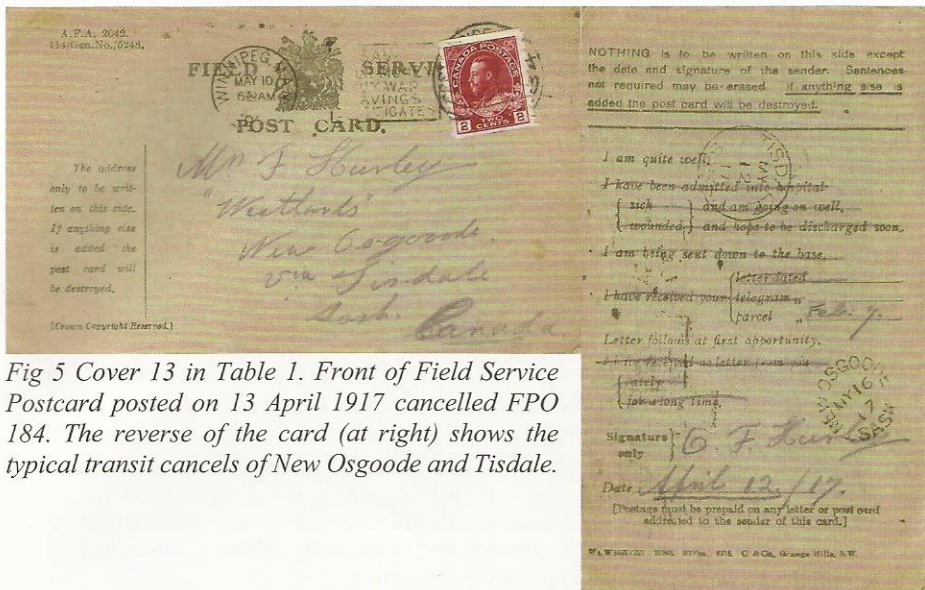 A.F.A. 2042.
114/Gen.No./5248.
FIELD SERVICE
POST CARD.
WINNIPEG, MAN
MAY 10
6 AM
MY WAR
SAVINGS
CANADA POSTAGE
2 TWO CENTS 2
The address
only to be writ-
ten on this side.
If anything else
is added the
post card will
be destroyed.
[Crown Copyright Reserved.]
Mr F Hurley
"Westlands"
New Osgoode.
via Tisdale
Sask.
Canada
NOTHING is to be written on this side except
the date and signature of the sender. Sentences
not required may be erased. If anything else is
added the post card will be destroyed.
I am quite well.
TISD
MY
12
17
I have been admitted into hospital
sick and am going on well.
wounded and hope to be discharged soon.
I am being sent down to the base.
letter dated
I have received your telegram „
parcel „ Feb. 7.
Letter follows at first opportunity.
I have received no letter from you
lately
for a long time.
NEW OSGOODE
MY 16
17
SASK
Signature
only
F. Hurley
Date April 12/17.
[Postage must be prepaid on any letter or post card
addressed to the sender of this card.]
Fig 5 Cover 13 in Table 1. Front of Field Service
Postcard posted on 13 April 1917 cancelled FPO
184. The reverse of the card (at right) shows the
typical transit cancels of New Osgoode and Tisdale.